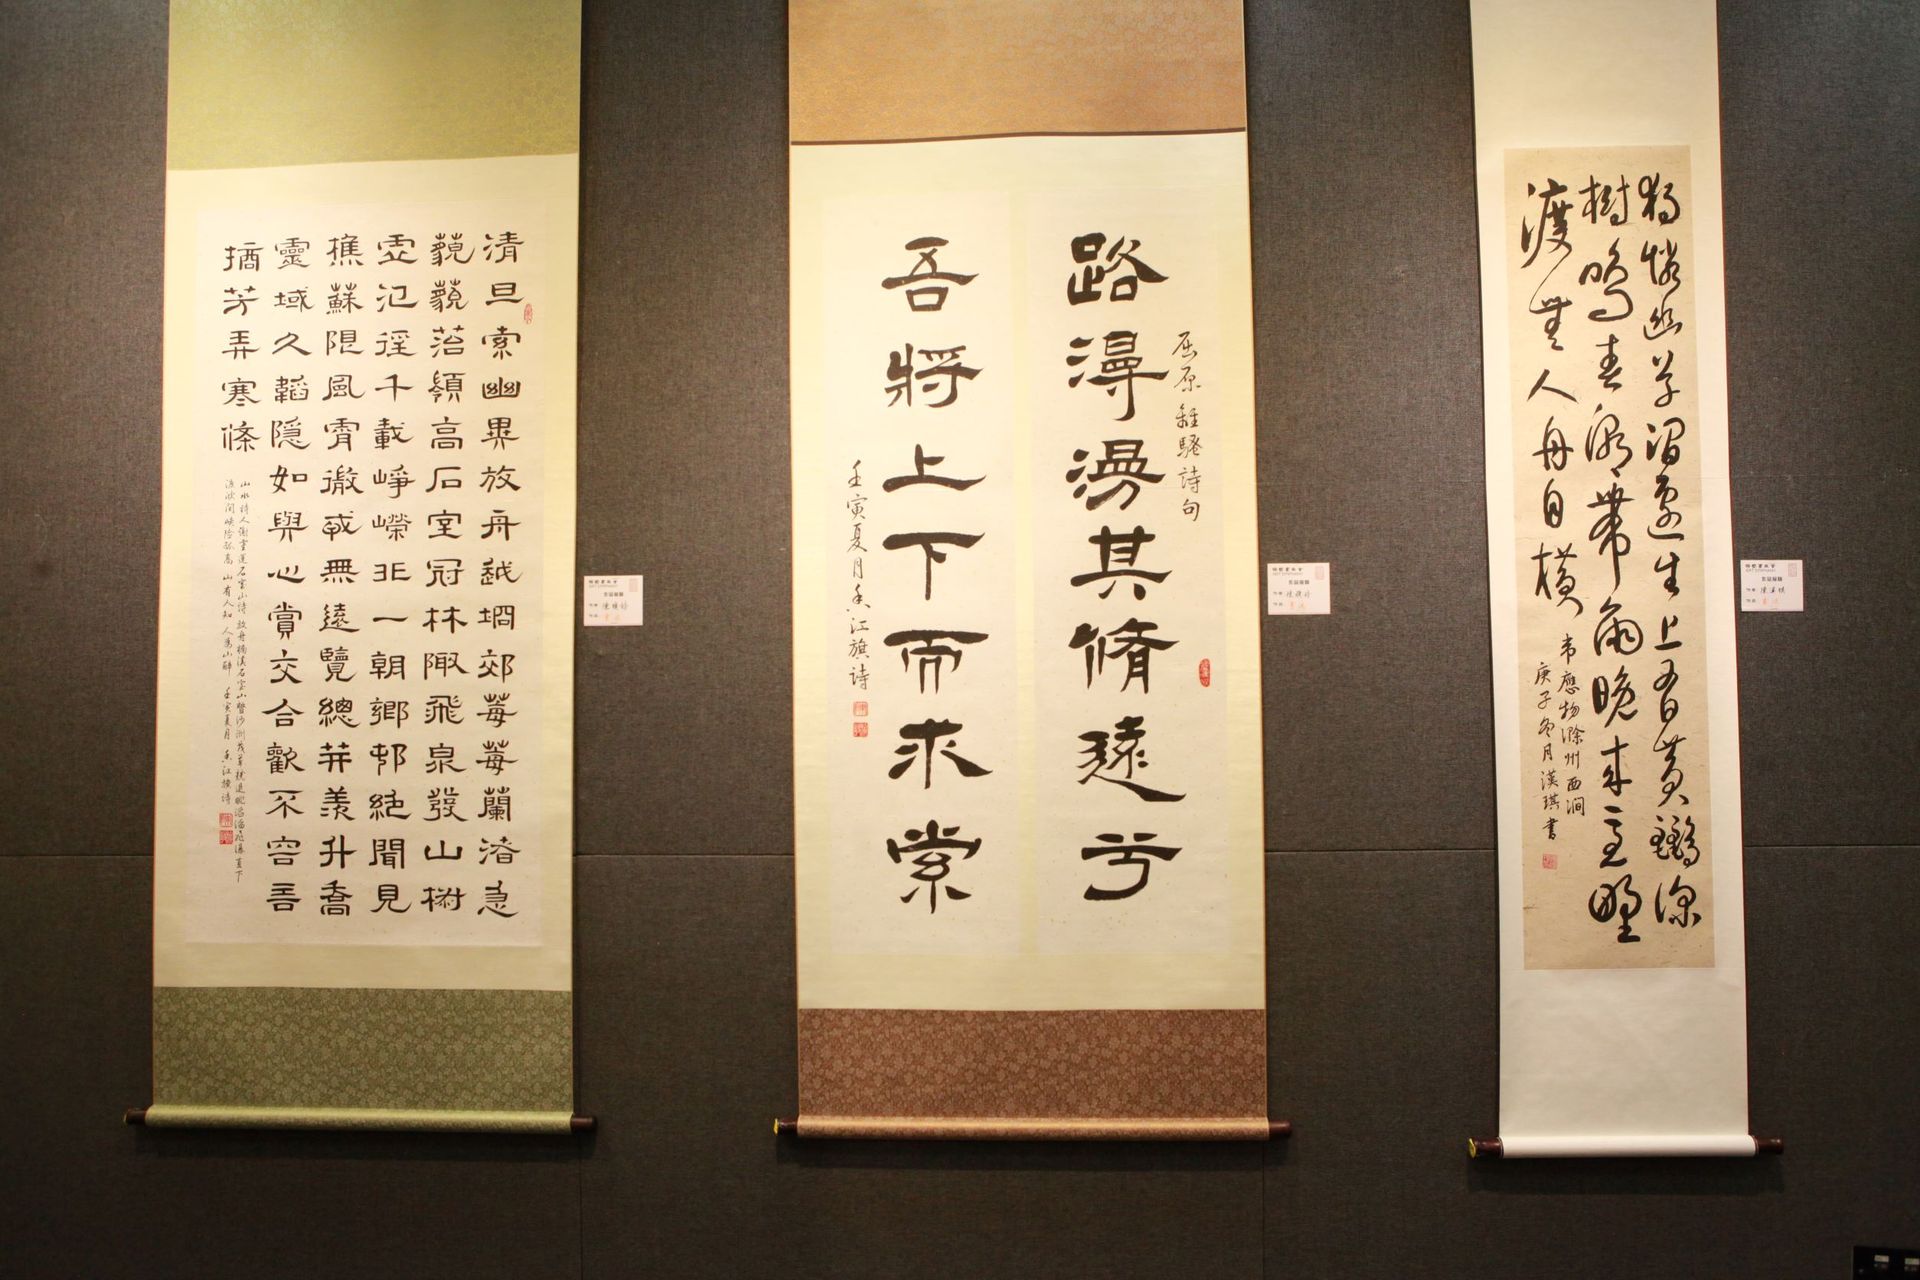 清旦索幽異放舟越坰郊莓莓蘭渚急
藐藐苔嶺高石室冠林陬飛泉發山椒
虛氾徑千載崢嶸非一朝鄉邨絕聞見
樵蘇限風霄微戎無遠覽總笄羨升喬
靈域久韜隱如與心賞交合歡不容言
摘芳弄寒條
山水詩人謝靈運石室山詩放舟楠溪石室山瞥沙洲茂草
間峽險孤高 山有人知 人為山醉 壬寅夏月 香江旗詩
屈原離騷詩句
路漫漫其脩遠兮
吾將上下而求索
壬寅夏月香江旗詩
獨憐幽草澗邊生上有黃鸝深
樹鳴春潮帶雨晚來急野
渡無人舟自橫
韋應物滁州西澗
庚子冬月漢琪書